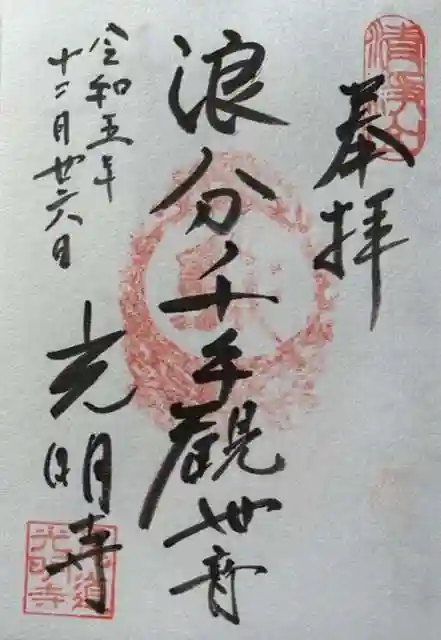 奉拝
浪分ノ千手観世音
光明寺
令和五年
十二月廿六日
清浄山
光明寺